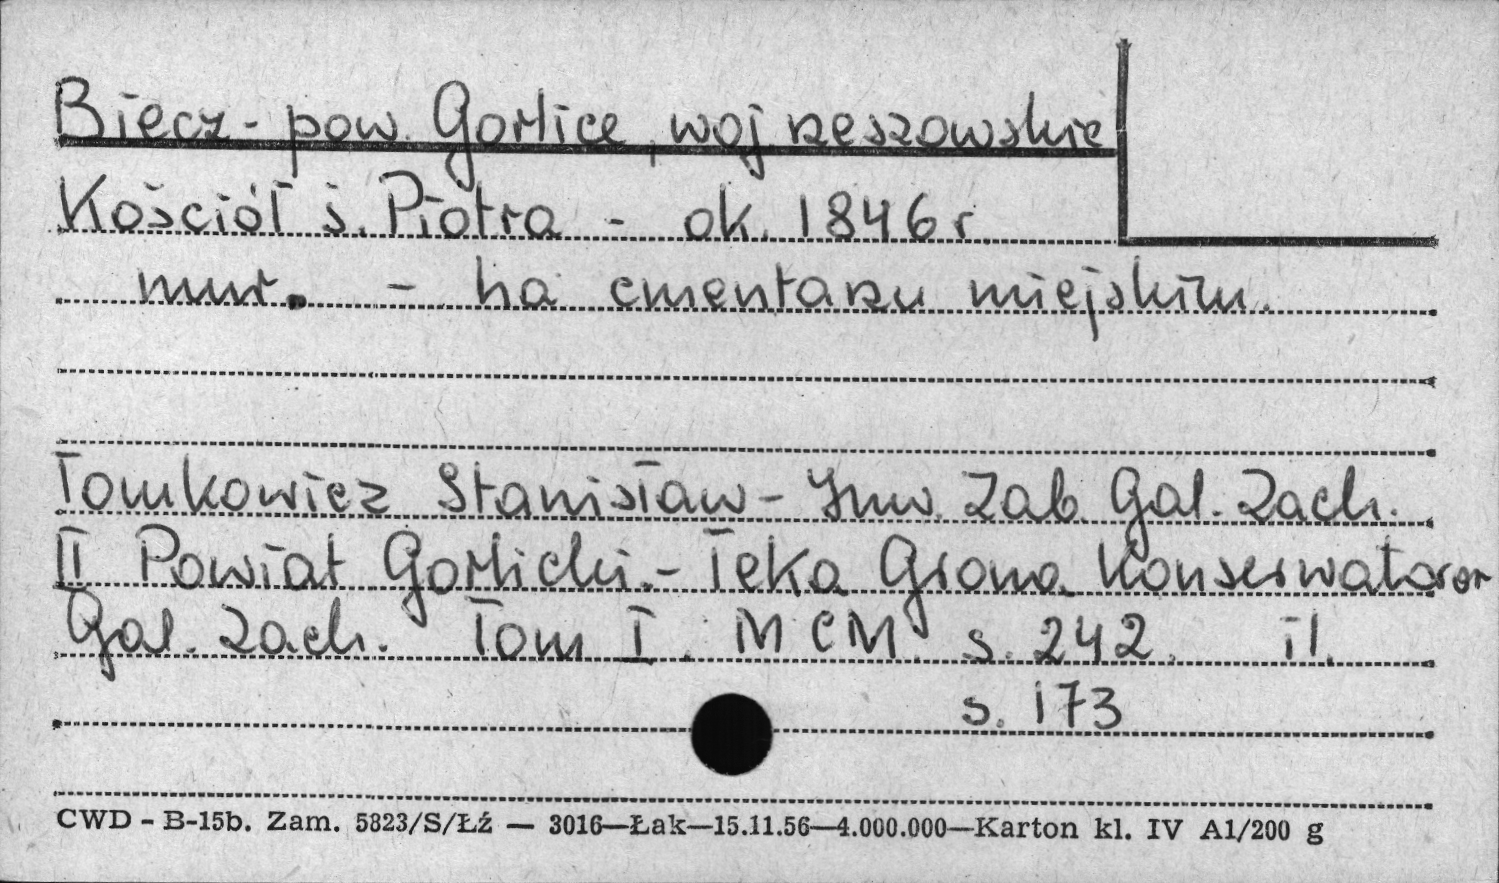 Biecz - pow. Gorlice, woj rzeszowskie
Kościół ś. Piotra - ok. 1846 r.
mur. - na cmentarzu miejskim.
Tomkowicz Stanisław - Inw. Zab. Gal. Zach.
II Powiat Gorlicki. - Teka Grona Konserwatorów
Gal. Zach. Tom I. MCM. s. 242. il.
s. 173
CWD - B-15b. Zam. 5823/S/Łź — 3016—Łak—15.11.56—4.000.000—Karton kl. IV A1/200 g